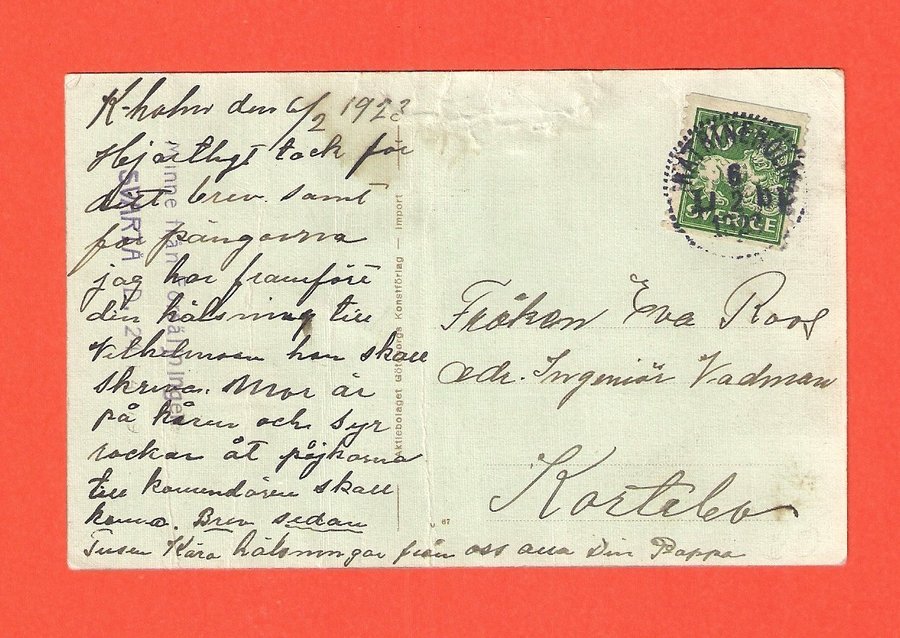 K-holm den 6/2 1923
Hjärtligt tack för
ditt brev samt
för pängarna
jag har framföre
din hälsning till
Vilhelmsen han skall
skriva. Mor är
på kåren och syr
rockar åt pojkarna
till komendören skall
komma. Brev sedan
Tusen Kära hälsningar från oss alla Din Pappa
Minne från
SVARTA
Aktiebolaget Göteborgs Konstförlag — Import
67
SVERIGE
6
2
Fröken Eva Roos
adr. Ingeniör Vadman
Kortebo